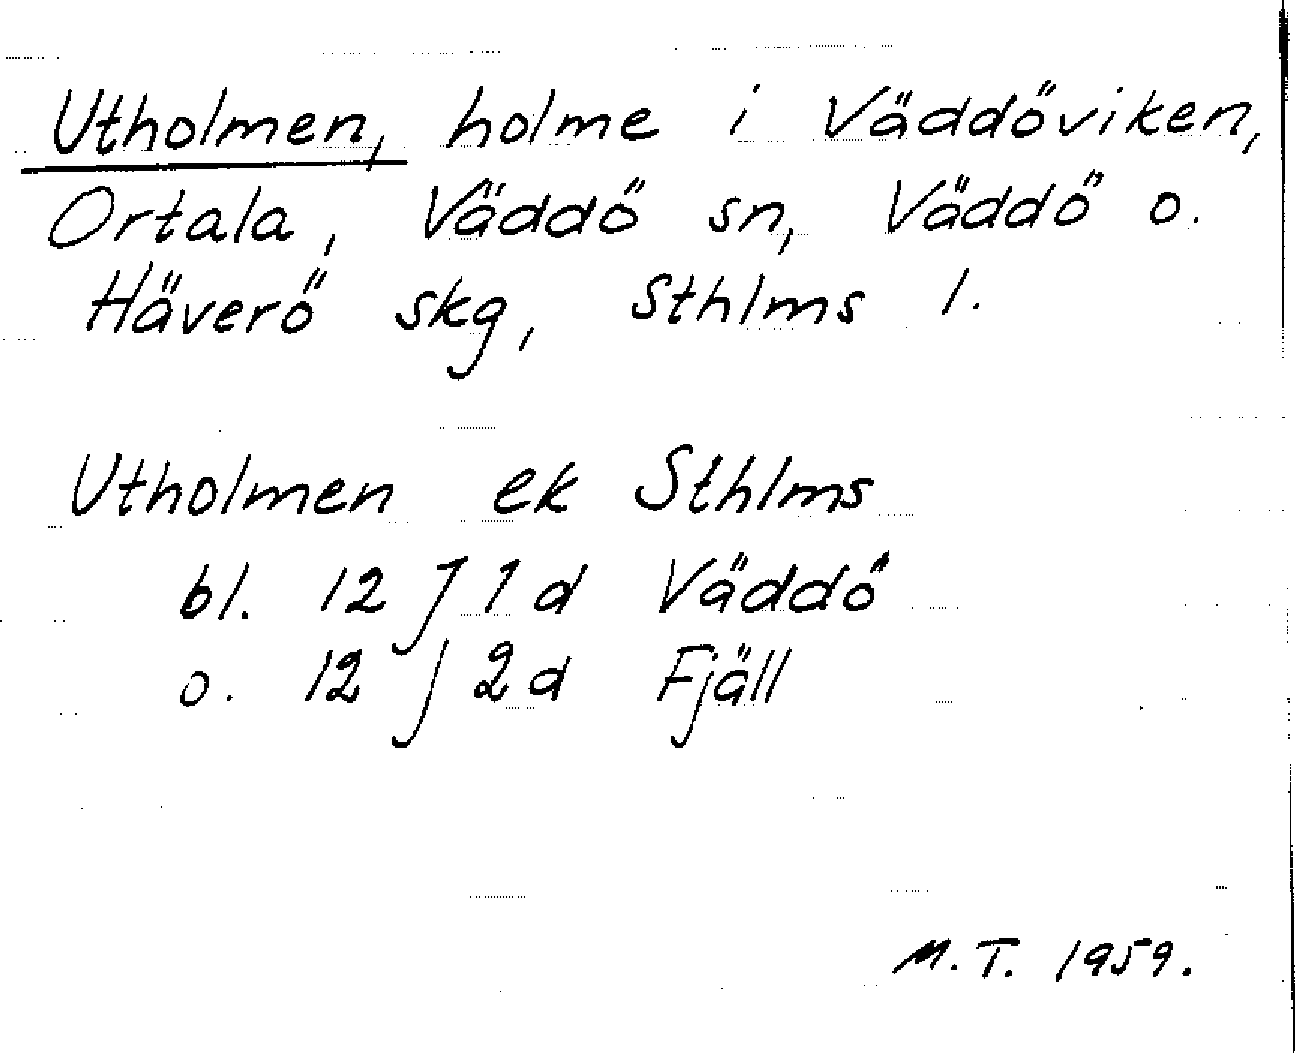 Utholmen, holme i Väddöviken,
Ortala, Väddö sn, Väddö o.
Häverö skg, Sthlms l.
Utholmen ek Sthlms
bl. 12 J 1 d Väddö
o. 12 J 2 d Fjäll
M.T. 1959.